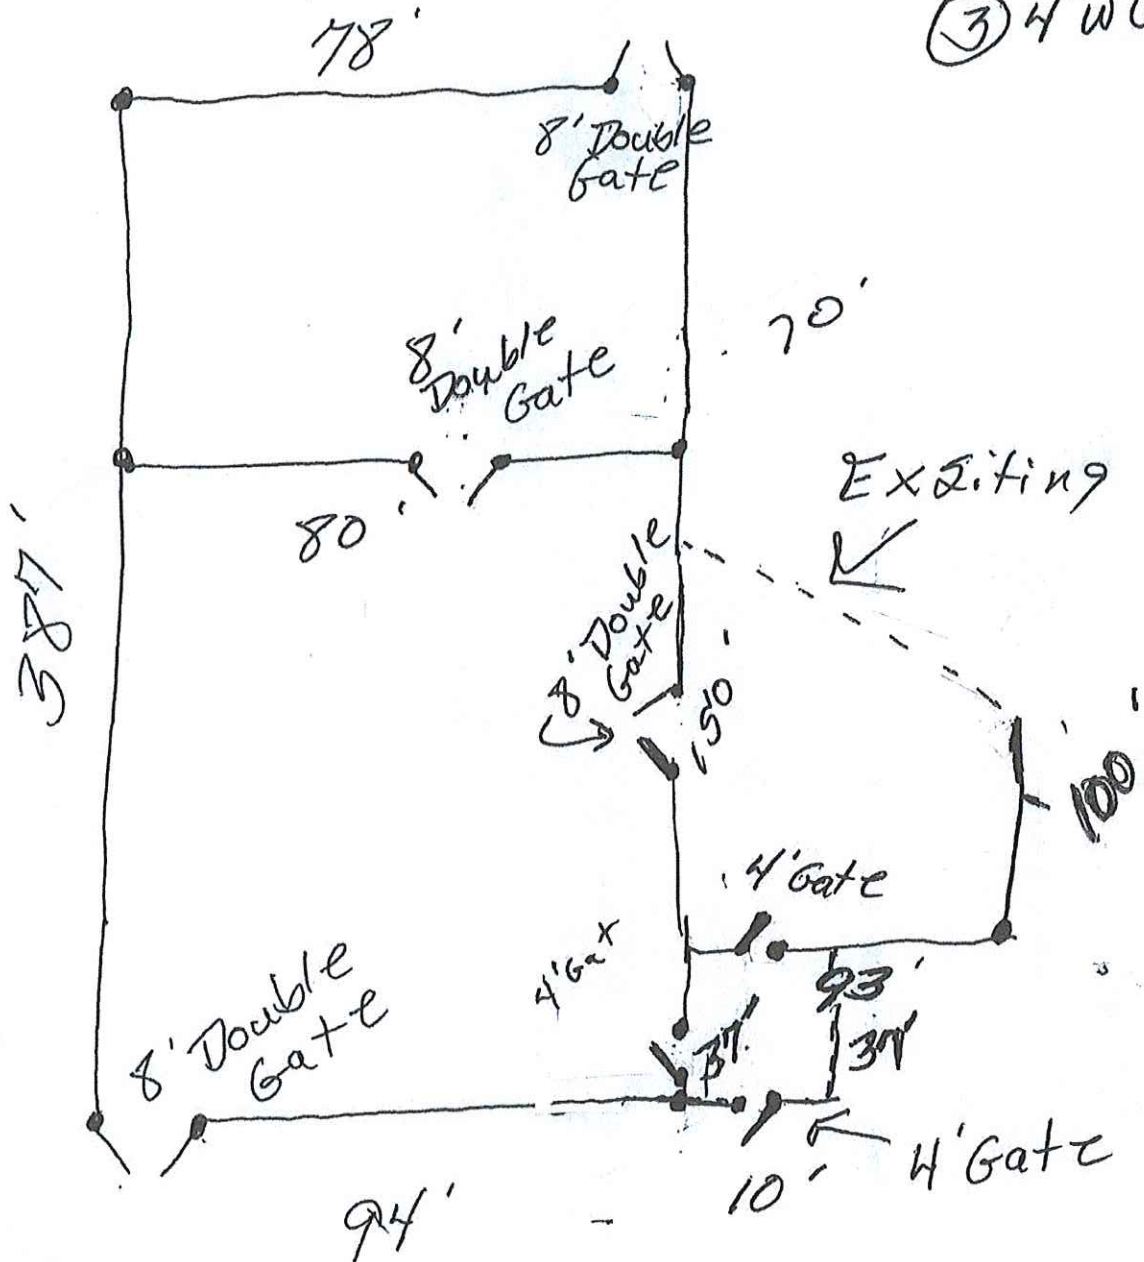 ③ 4 W
78'
8' Double
Gate
70'
8'
Double
Gate
ExSiting
80'
387'
8' Double
Gate
150'
100'
4' Gate
4' Gat
93'
8' Double
Gate
37'
37'
4' Gate
10'
94'